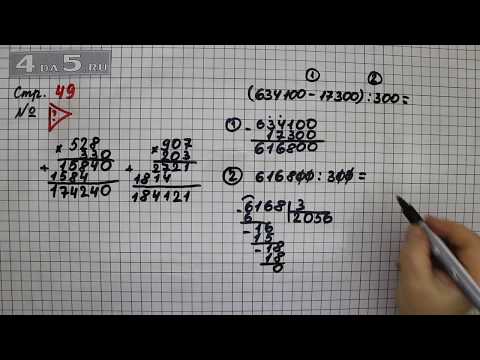 4 DA 5.RU
Стр. 49
№ !
× 528
330
+ 15840
1584
174240
× 907
203
+ 2721
1814
184121
① ②
(634100 - 17300) : 300 =
① - 634100
17300
616800
② 616800 : 300 =
- 6168 | 3
6 | 2056
- 16
15
- 18
18
0